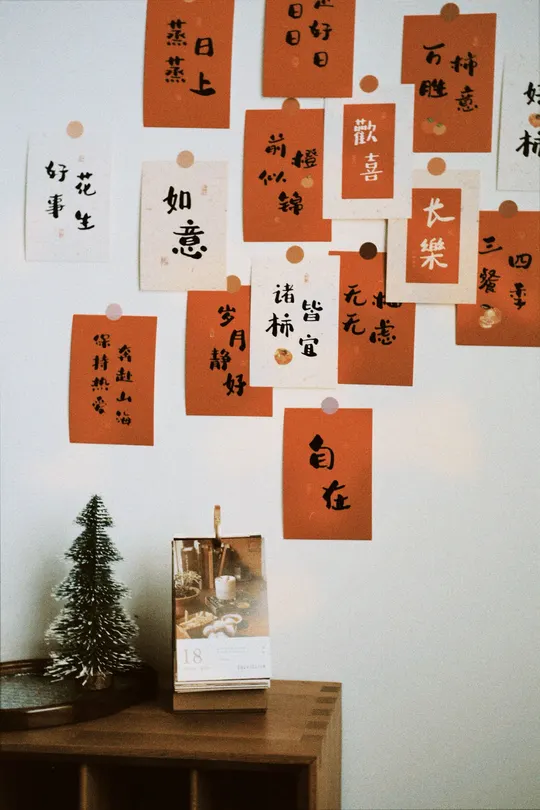 蒸蒸
日上
日日
好日
万柿
胜意
好柿
前橙
似锦
歡喜
好事
花生
如意
长樂
三餐
四季
诸柿
皆宜
岁月
静好
无
无虑
保持热爱
奔赴山海
自在
18